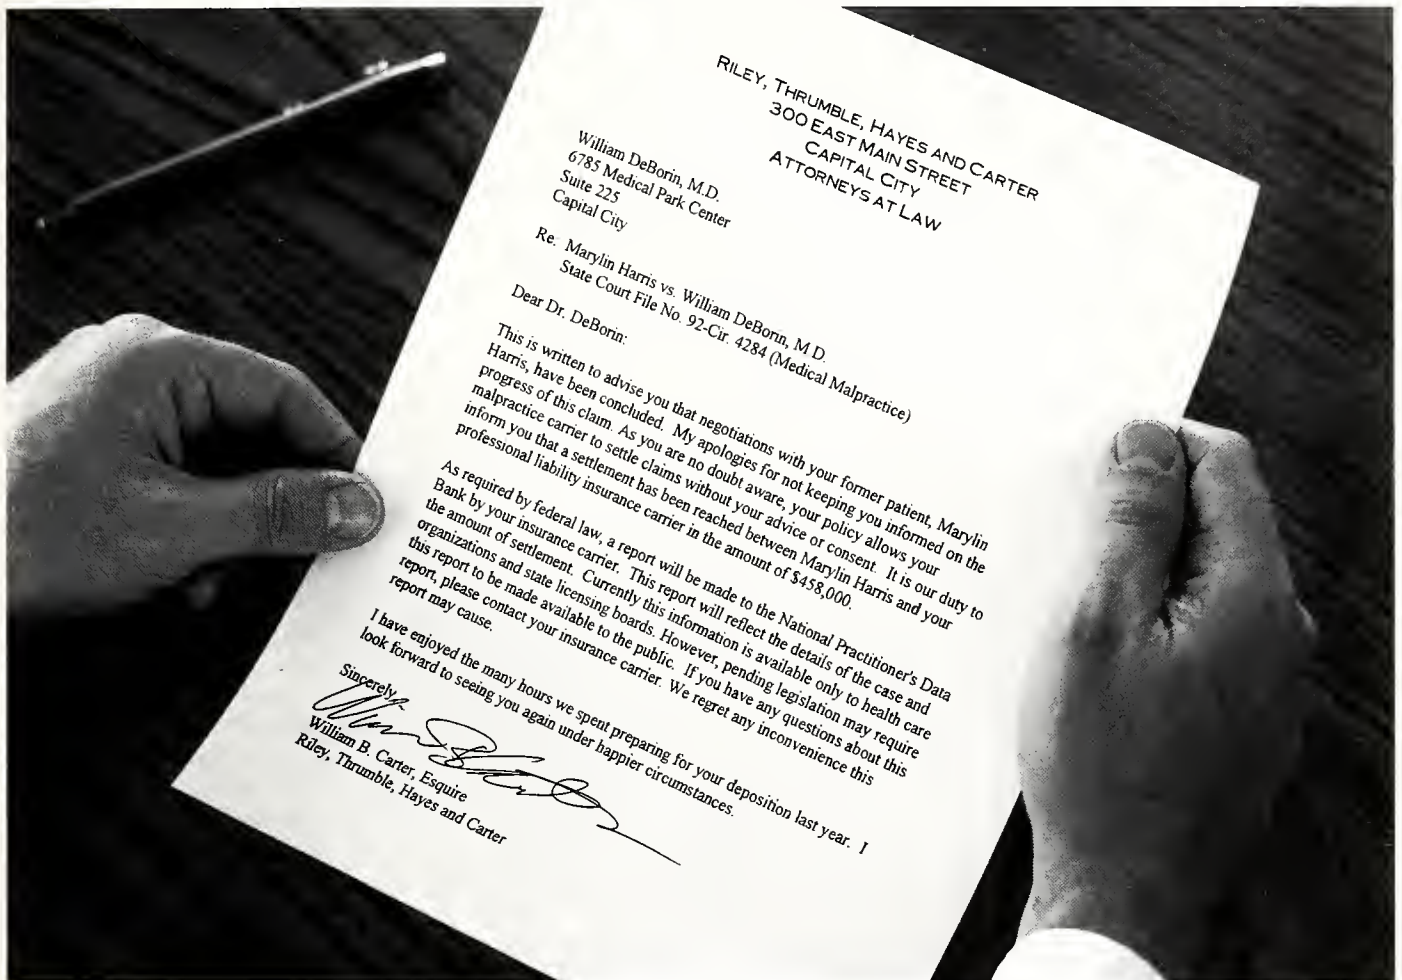 RILEY, THRUMBLE, HAYES AND CARTER
300 EAST MAIN STREET
CAPITAL CITY
ATTORNEYS AT LAW
William DeBorin, M.D.
6785 Medical Park Center
Suite 225
Capital City
Re. Marylin Harris vs. William DeBorin, M D.
State Court File No. 92-Cir. 4284 (Medical Malpractice)
Dear Dr. DeBorin:
This is written to advise you that negotiations with your former patient, Marylin
Harris, have been concluded. My apologies for not keeping you informed on the
progress of this claim. As you are no doubt aware, your policy allows your
malpractice carrier to settle claims without your advice or consent. It is our duty to
inform you that a settlement has been reached between Marylin Harris and your
professional liability insurance carrier in the amount of $458,000.
As required by federal law, a report will be made to the National Practitioner's Data
Bank by your insurance carrier. This report will reflect the details of the case and
the amount of settlement. Currently this information is available only to health care
organizations and state licensing boards. However, pending legislation may require
this report to be made available to the public. If you have any questions about this
report, please contact your insurance carrier. We regret any inconvenience this
report may cause.
I have enjoyed the many hours we spent preparing for your deposition last year. I
look forward to seeing you again under happier circumstances.
Sincerely,
William B. Carter, Esquire
Riley, Thrumble, Hayes and Carter